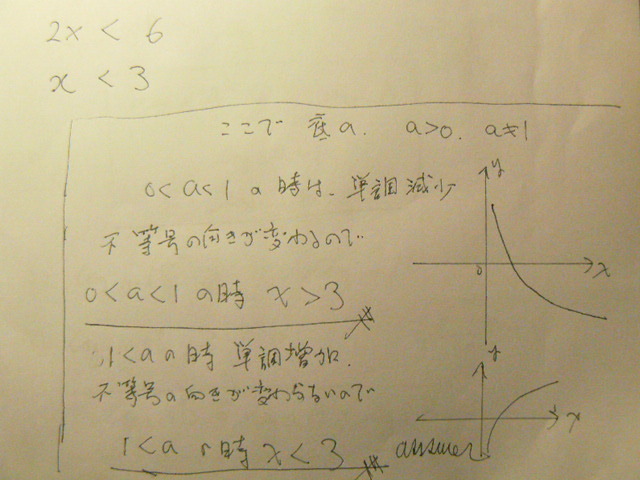 2x < 6
x < 3
ここで 底a. a>0. a≠1
0<a<1の時は、単調減少
不等号の向きが変わるので
0<a<1の時 x>3
1<aの時 単調増加.
不等号の向きが変わらないので
1<aの時 x<3
y
0
x
y
x
answer